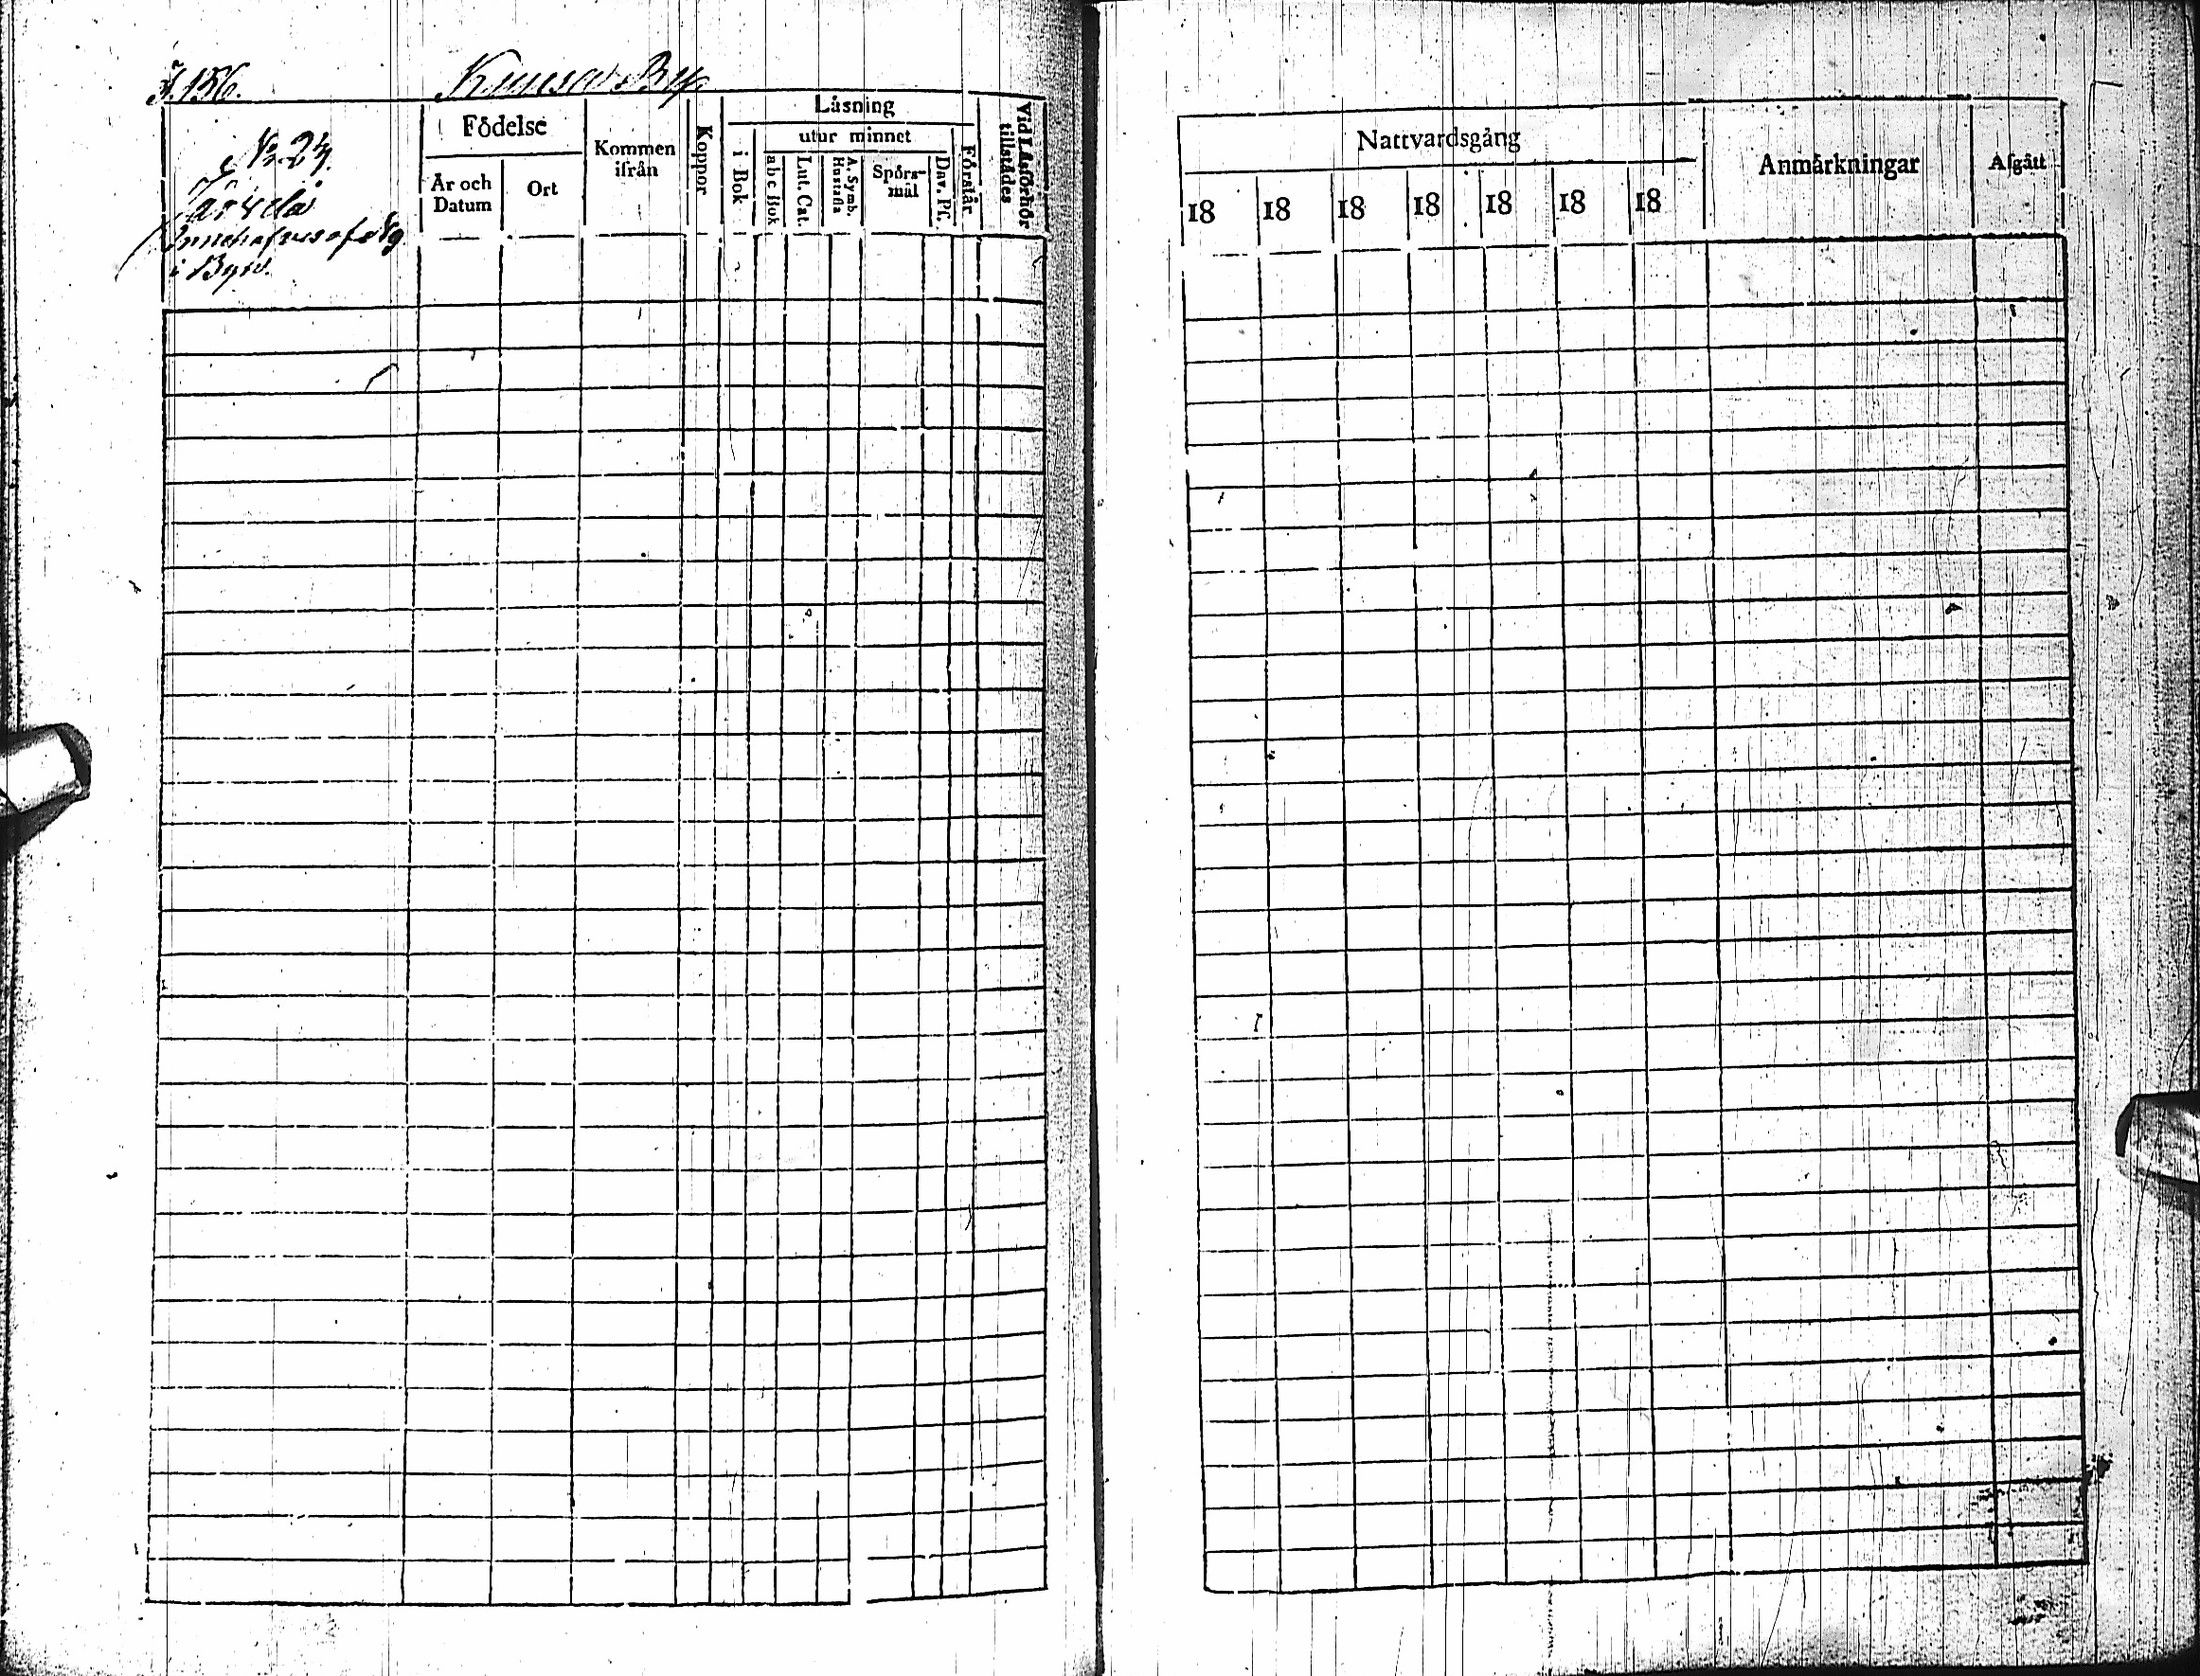 156.
By
No 24.
i Byn.
Födelse
År och Datum
Ort
Kommen ifrån
Koppor
Läsning
i Bok
utur minnet
abc Bok
Lut. Cat.
A. Symb. Hustafla
Spörsmål
Dav. Ps.
Förstår
Vid Läsförhör tillstädes
Nattvardsgång
18 18 18 18 18 18 18
Anmärkningar
Afgått